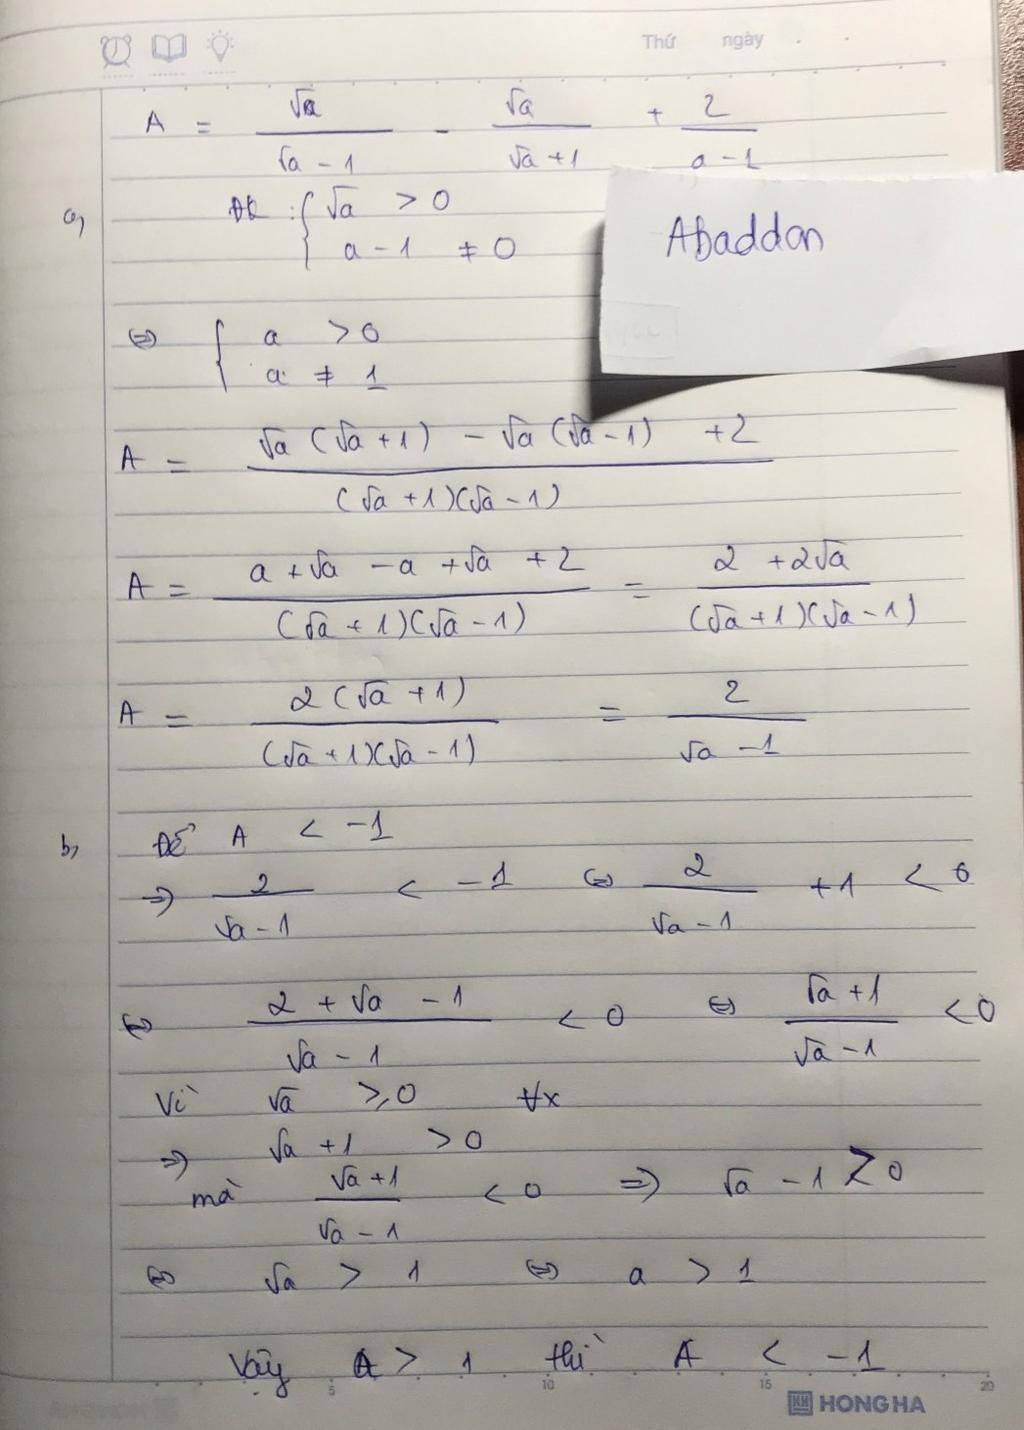 Thứ ngày
A = √a / (√a - 1) - √a / (√a + 1) + 2 / (a - 1)
a, ĐK : { √a > 0
a - 1 ≠ 0
Abaddon
⇔ { a > 0
a ≠ 1
A = (√a (√a + 1) - √a (√a - 1) + 2) / ((√a + 1)(√a - 1))
A = (a + √a - a + √a + 2) / ((√a + 1)(√a - 1)) = (2 + 2√a) / ((√a + 1)(√a - 1))
A = 2(√a + 1) / ((√a + 1)(√a - 1)) = 2 / (√a - 1)
b, Để A < -1
⇒ 2 / (√a - 1) < -1 ⇔ 2 / (√a - 1) + 1 < 0
⇔ (2 + √a - 1) / (√a - 1) < 0 ⇔ (√a + 1) / (√a - 1) < 0
Vì √a ≥ 0 ∀x
⇒ √a + 1 > 0
mà (√a + 1) / (√a - 1) < 0 ⇒ √a - 1 > 0
⇔ √a > 1 ⇔ a > 1
Vậy a > 1 thì A < -1
5 10 15 20
HONG HA